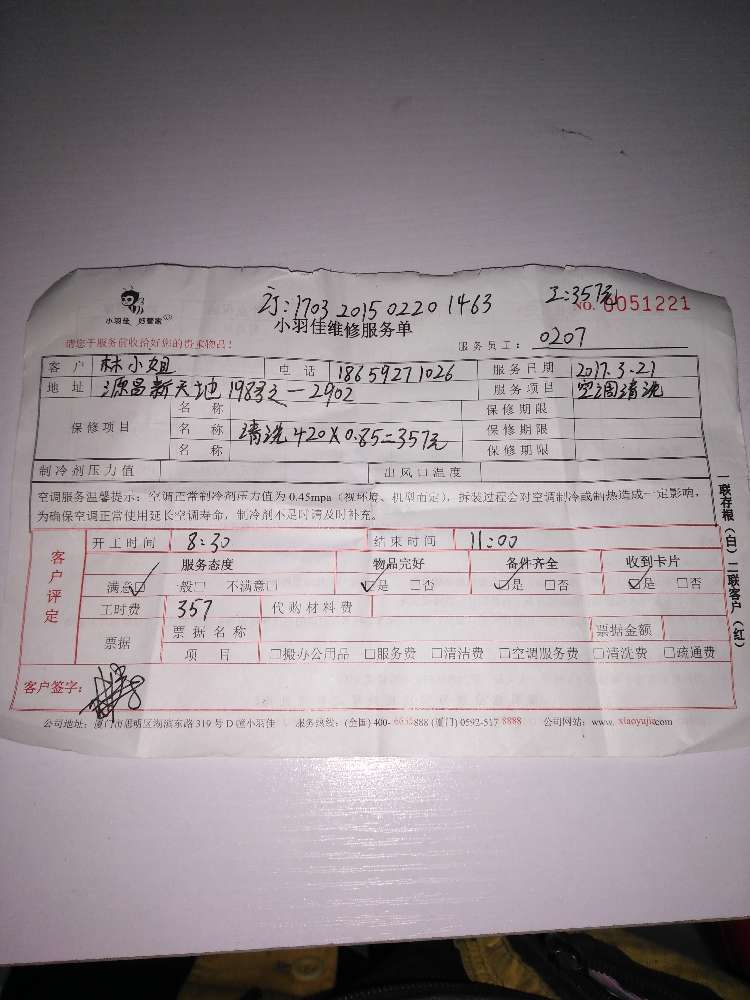 订:1703 2015 0220 1463 工:357元
小羽佳 好管家 NO. 0051221
小羽佳维修服务单
请您于服务前收拾好您的贵重物品! 服务员工: 0207
客户 林小姐 电话 18659271026 服务日期 2017.3.21
地址 源昌新天地 198号之一-2902 服务项目 空调清洗
保修项目 名称 保修期限
名称 清洗420X0.85=357元 保修期限
名称 保修期限
制冷剂压力值 出风口温度
空调服务温馨提示:空调正常制冷剂压力值为0.45mpa(视环境、机型而定),拆装过程会对空调制冷或制热造成一定影响,
为确保空调正常使用延长空调寿命,制冷剂不足时请及时补充。
客户评定
开工时间 8:30 结束时间 11:00
服务态度 物品完好 备件齐全 收到卡片
满意☑ 一般□ 不满意□ ☑是 □否 ☑是 □否 ☑是 □否
工时费 357 代购材料费
票据 票据名称 票据金额
项目 □搬办公用品 □服务费 □清洁费 □空调服务费 □清洗费 □疏通费
客户签字:
公司地址:厦门市思明区湖滨东路319号D座小羽佳 服务热线:(全国)400- 888 (厦门) 0592-517 8888 公司网站:www. xiaoyujia.com
一联存根(白)二联客户(红)